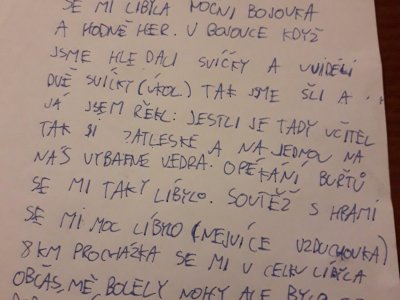 SE MI LÍBYLA NOČNÍ BOJOVKA
A HODNĚ HER. V BOJOVCE KDYŽ
JSME HLEDALI SVÍČKY A UVIDĚLI
DVĚ SVÍČKY (ÚKOL) TAK JSME ŠLI A
JÁ JSEM ŘEKL: JESTLI JE TADY UČITEL
TAK AŤ ZATLESKE A NAJEDNOU NA
NÁS VYBAFNE VEDRA. OPÉKÁNÍ BURTŮ
SE MI TAKY LÍBYLO. SOUTĚŽ S HRAMI
SE MI MOC LÍBYLO (NEJVÍCE VZDUCHOVKA)
8 KM PROCHÁZKA SE MI V CELKU LÍBYLA
OBČAS MĚ BOLELY NOHY ALE BYLO